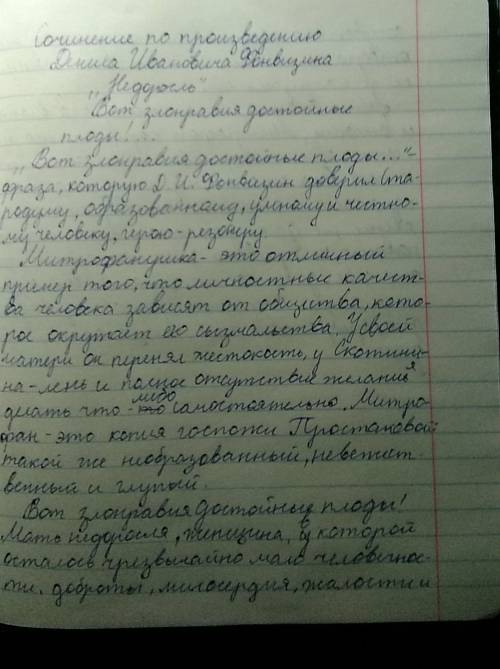 Сочинение по произведению
Дениса Ивановича Фонвизина
„Недоросль"
„Вот злонравия достойные
плоды!...
„Вот злонравия достойные плоды..."-
фраза, которую Д. И. Фонвизин доверил Ста-
родуму, образованному, умному и честно-
му человеку, герою-резонеру.
Митрофанушка - это отличный
пример того, что личностные качест-
ва человека зависят от общества, кото-
рое окружает его сызмальства. У своей
матери он перенял жестокость, у Скотини-
на - лень и полное отсутствие желания
делать что-либо самостоятельно. Митро-
фан - это копия госпожи Простаковой
такой же необразованный, невежест-
венный и глупый.
Вот злонравия достойные плоды!
Мать недоросля, женщина, в которой
осталось чрезвычайно мало человечнос-
ти, доброты, милосердия, жалости и